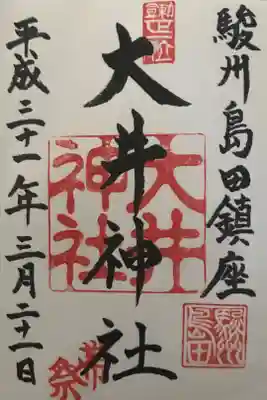 駿州島田鎮座
大井神社
平成三十一年三月二十一日
大井
神社
駿州
島田
帯祭